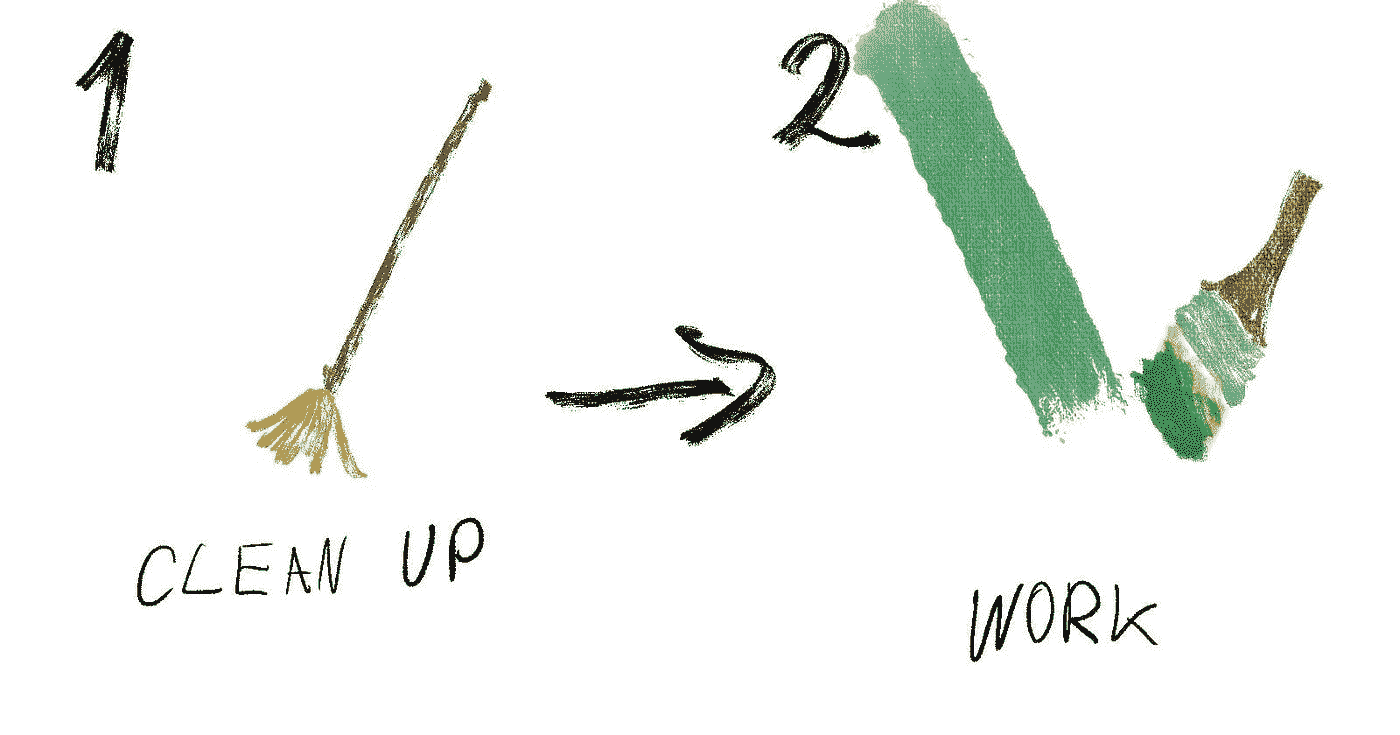 1
2
CLEAN UP
WORK